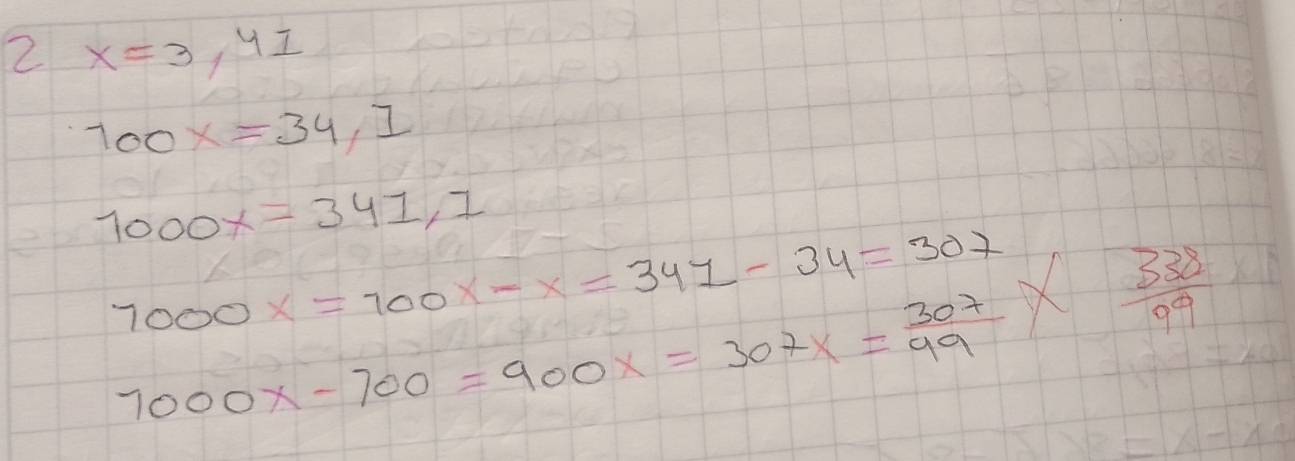 2 x=3,41
100x=34,1
1000x=341,1
1000x=100x-x=341-34=307
1000x-100=900x=307x=307/99 X 338/99